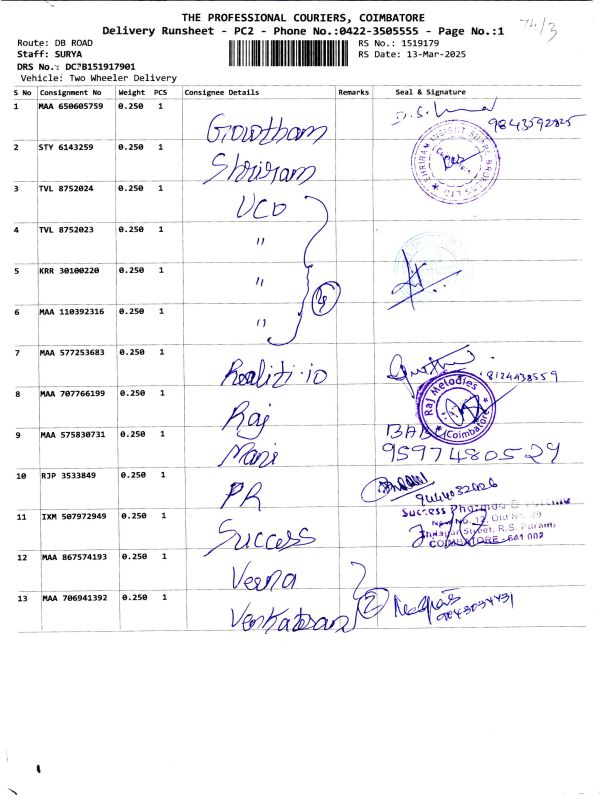 THE PROFESSIONAL COURIERS, COIMBATORE
74/3
Delivery Runsheet - PC2 - Phone No.:0422-3505555 - Page No.:1
Route: DB ROAD
RS No.: 1519179
Staff: SURYA
RS Date: 13-Mar-2025
DRS No.: DC2B151917901
Vehicle: Two Wheeler Delivery
S No Consignment No Weight PCS Consignee Details Remarks Seal & Signature
1 MAA 650605759 0.250 1 Gowtham 9843592825
2 STY 6143259 0.250 1 Shriram
SHRIRAM INSIGHT SHARE BROKERS LTD
3 TVL 8752024 0.250 1 UCO
4 TVL 8752023 0.250 1 "
5 KRR 30100220 0.250 1 " 4
6 MAA 110392316 0.250 1 "
7 MAA 577253683 0.250 1 Realiti.io 8124438559
8 MAA 707766199 0.250 1 Raj
Raj Melodies Coimbatore
9 MAA 575830731 0.250 1 Mani BABU
9597480529
10 RJP 3533849 0.250 1 PR
11 IXM 507972949 0.250 1 Success
Success Pharma
New No. 12, Old No. 29
Street, R.S. Puram,
COIMBATORE - 641 002
12 MAA 867574193 0.250 1 Veena
13 MAA 706941392 0.250 1 Venkatesan 2